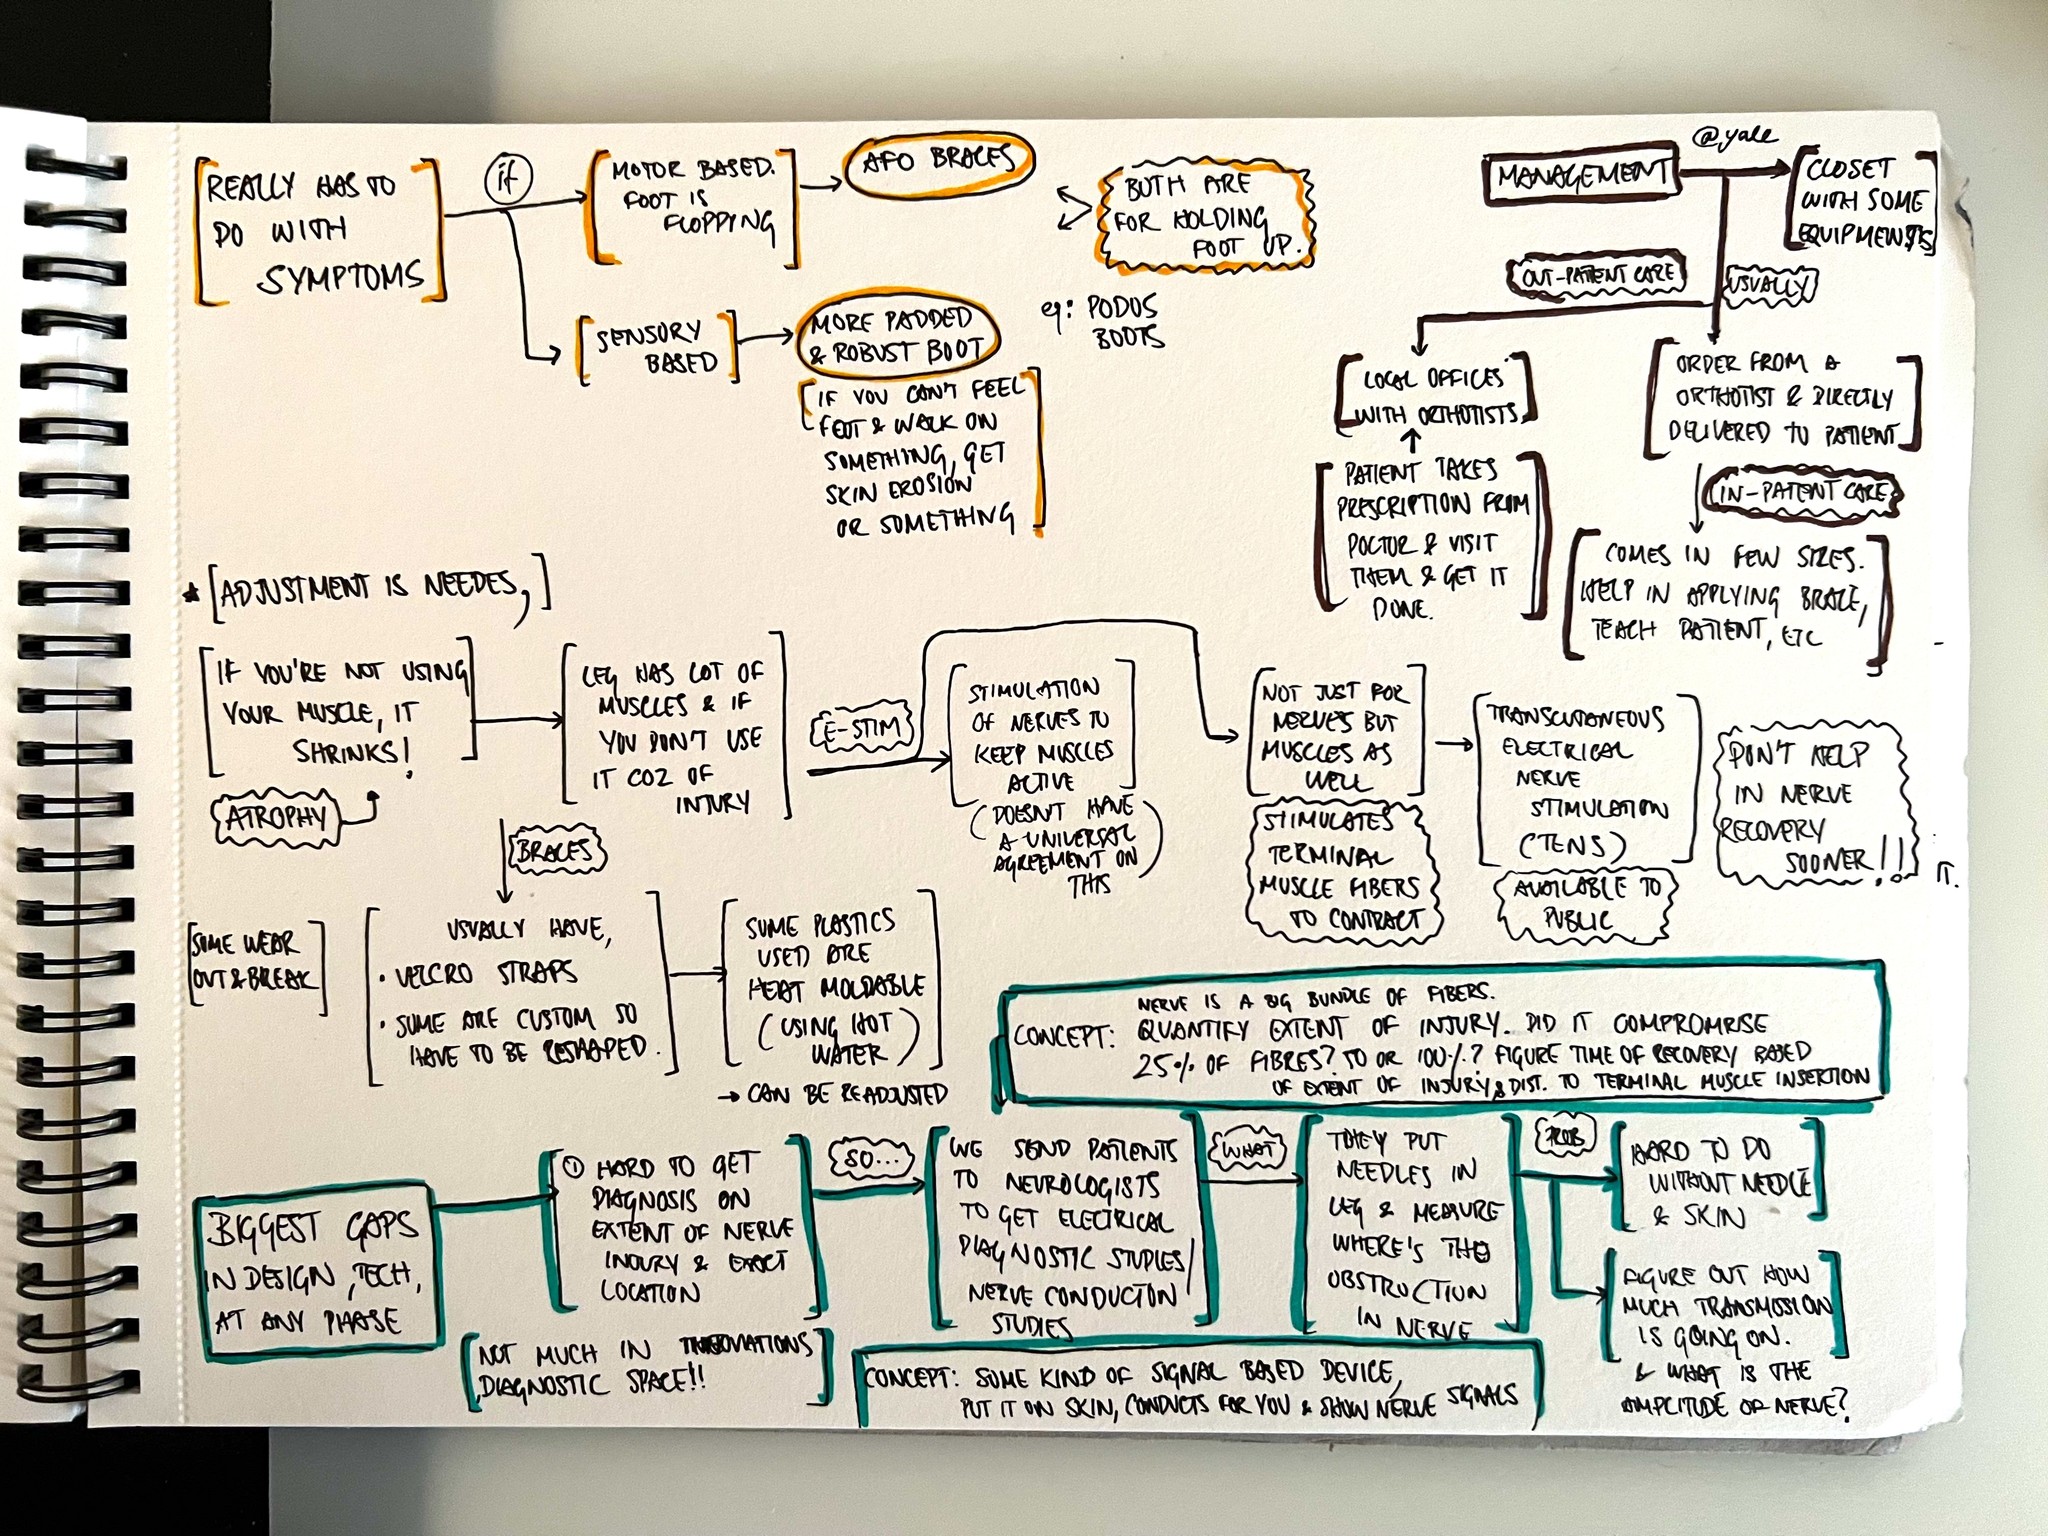 REALLY HAS TO
DO WITH
SYMPTOMS
if
MOTOR BASED.
FOOT IS
FLOPPYNG
AFO BRACES
BOTH ARE
FOR HOLDING
FOOT UP.
SENSORY
BASED
MORE PADDED
& ROBUST BOOT
eg: PODUS
BOOTS
IF YOU CAN'T FEEL
FEET & WALK ON
SOMETHING, GET
SKIN EROSION
OR SOMETHING
MANAGEMENT
@yale
CLOSET
WITH SOME
EQUIPMENTS
OUT-PATIENT CARE
USUALLY
LOCAL OFFICES
WITH ORTHOTISTS
PATIENT TAKES
PRESCRIPTION FROM
DOCTOR & VISIT
THEM & GET IT
DONE.
ORDER FROM A
ORTHOTIST & DIRECTLY
DELIVERED TO PATIENT
IN-PATIENT CARE
COMES IN FEW SIZES.
HELP IN APPLYING BRACE,
TEACH PATIENT, ETC
* [ADJUSTMENT IS NEEDES,]
IF YOU'RE NOT USING
YOUR MUSCLE, IT
SHRINKS!
ATROPHY
LEG HAS LOT OF
MUSCLES & IF
YOU DON'T USE
IT COZ OF
INJURY
E-STIM
STIMULATION
OF NERVES TO
KEEP MUSCLES
ACTIVE
(DOESN'T HAVE
A UNIVERSAL
AGREEMENT ON
THIS)
NOT JUST FOR
NERVES BUT
MUSCLES AS
WELL
STIMULATES
TERMINAL
MUSCLE FIBERS
TO CONTRACT
TRANSCUTANEOUS
ELECTRICAL
NERVE
STIMULATION
(TENS)
AVAILABLE TO
PUBLIC
DON'T HELP
IN NERVE
RECOVERY
SOONER!!
IT.
BRACES
SOME WEAR
OUT & BREAK
USUALLY HAVE,
• VELCRO STRAPS
• SOME ARE CUSTOM SO
HAVE TO BE RESHAPED.
SOME PLASTICS
USED ARE
HEAT MOLDABLE
(USING HOT
WATER)
→ CAN BE READJUSTED
NERVE IS A BIG BUNDLE OF FIBERS.
CONCEPT: QUANTIFY EXTENT OF INJURY. DID IT COMPROMISE
25% OF FIBRES? 50 OR 100%? FIGURE TIME OF RECOVERY BASED
OF EXTENT OF INJURY & DIST. TO TERMINAL MUSCLE INSERTION
BIGGEST GAPS
IN DESIGN, TECH,
AT ANY PHASE
① HARD TO GET
DIAGNOSIS ON
EXTENT OF NERVE
INJURY & EXACT
LOCATION
NOT MUCH IN INNOVATIONS
DIAGNOSTIC SPACE!!
SO...
WE SEND PATIENTS
TO NEUROLOGISTS
TO GET ELECTRICAL
DIAGNOSTIC STUDIES/
NERVE CONDUCTON
STUDIES
WHAT
THEY PUT
NEEDLES IN
LEG & MEASURE
WHERE'S THE
OBSTRUCTION
IN NERVE
PROB
HARD TO DO
WITHOUT NEEDLE
& SKIN
FIGURE OUT HOW
MUCH TRANSMISSION
IS GOING ON.
& WHAT IS THE
AMPLITUDE OF NERVE?
CONCEPT: SOME KIND OF SIGNAL BASED DEVICE,
PUT IT ON SKIN, CONDUCTS FOR YOU & SHOW NERVE SIGNALS